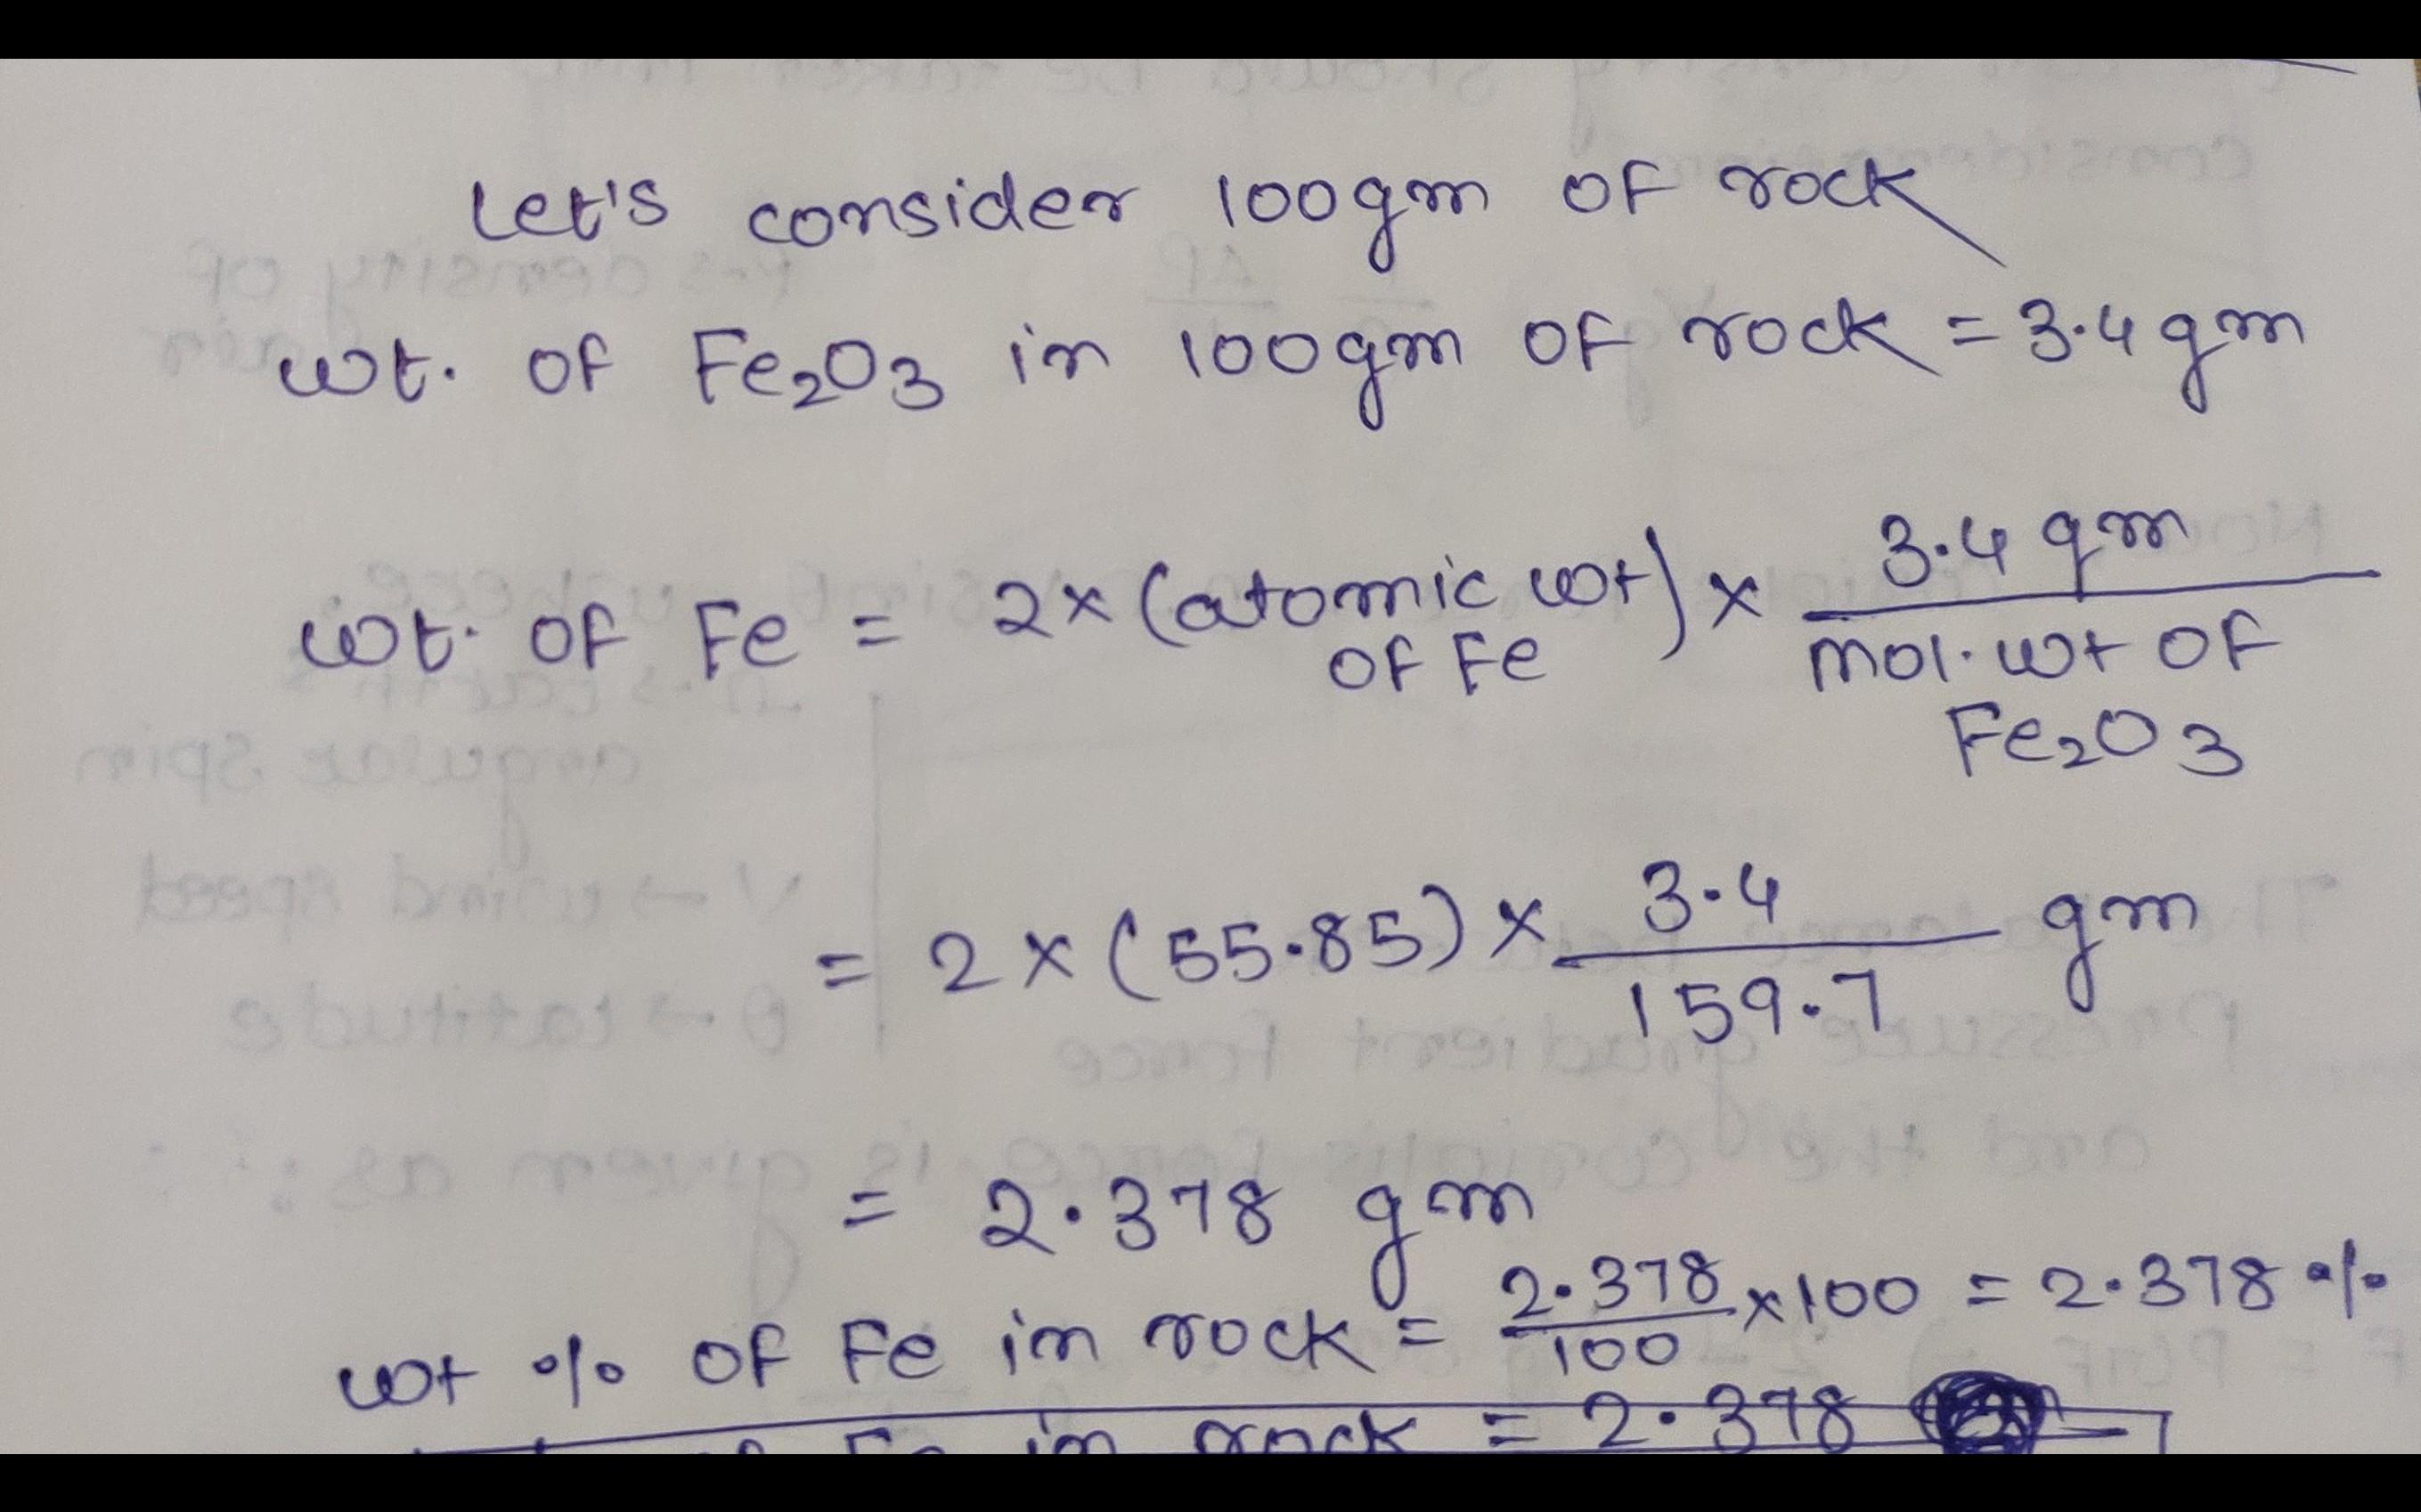 Let's consider 100gm of rock
wt. of Fe₂O₃ in 100gm of rock = 3.4 gm
wt. of Fe = 2 × (atomic wt of Fe) × 3.4 gm / mol. wt of Fe₂O₃
= 2 × (55.85) × 3.4 / 159.7 gm
= 2.378 gm
wt % of Fe in rock = 2.378 / 100 × 100 = 2.378 %
Fe in rock = 2.378